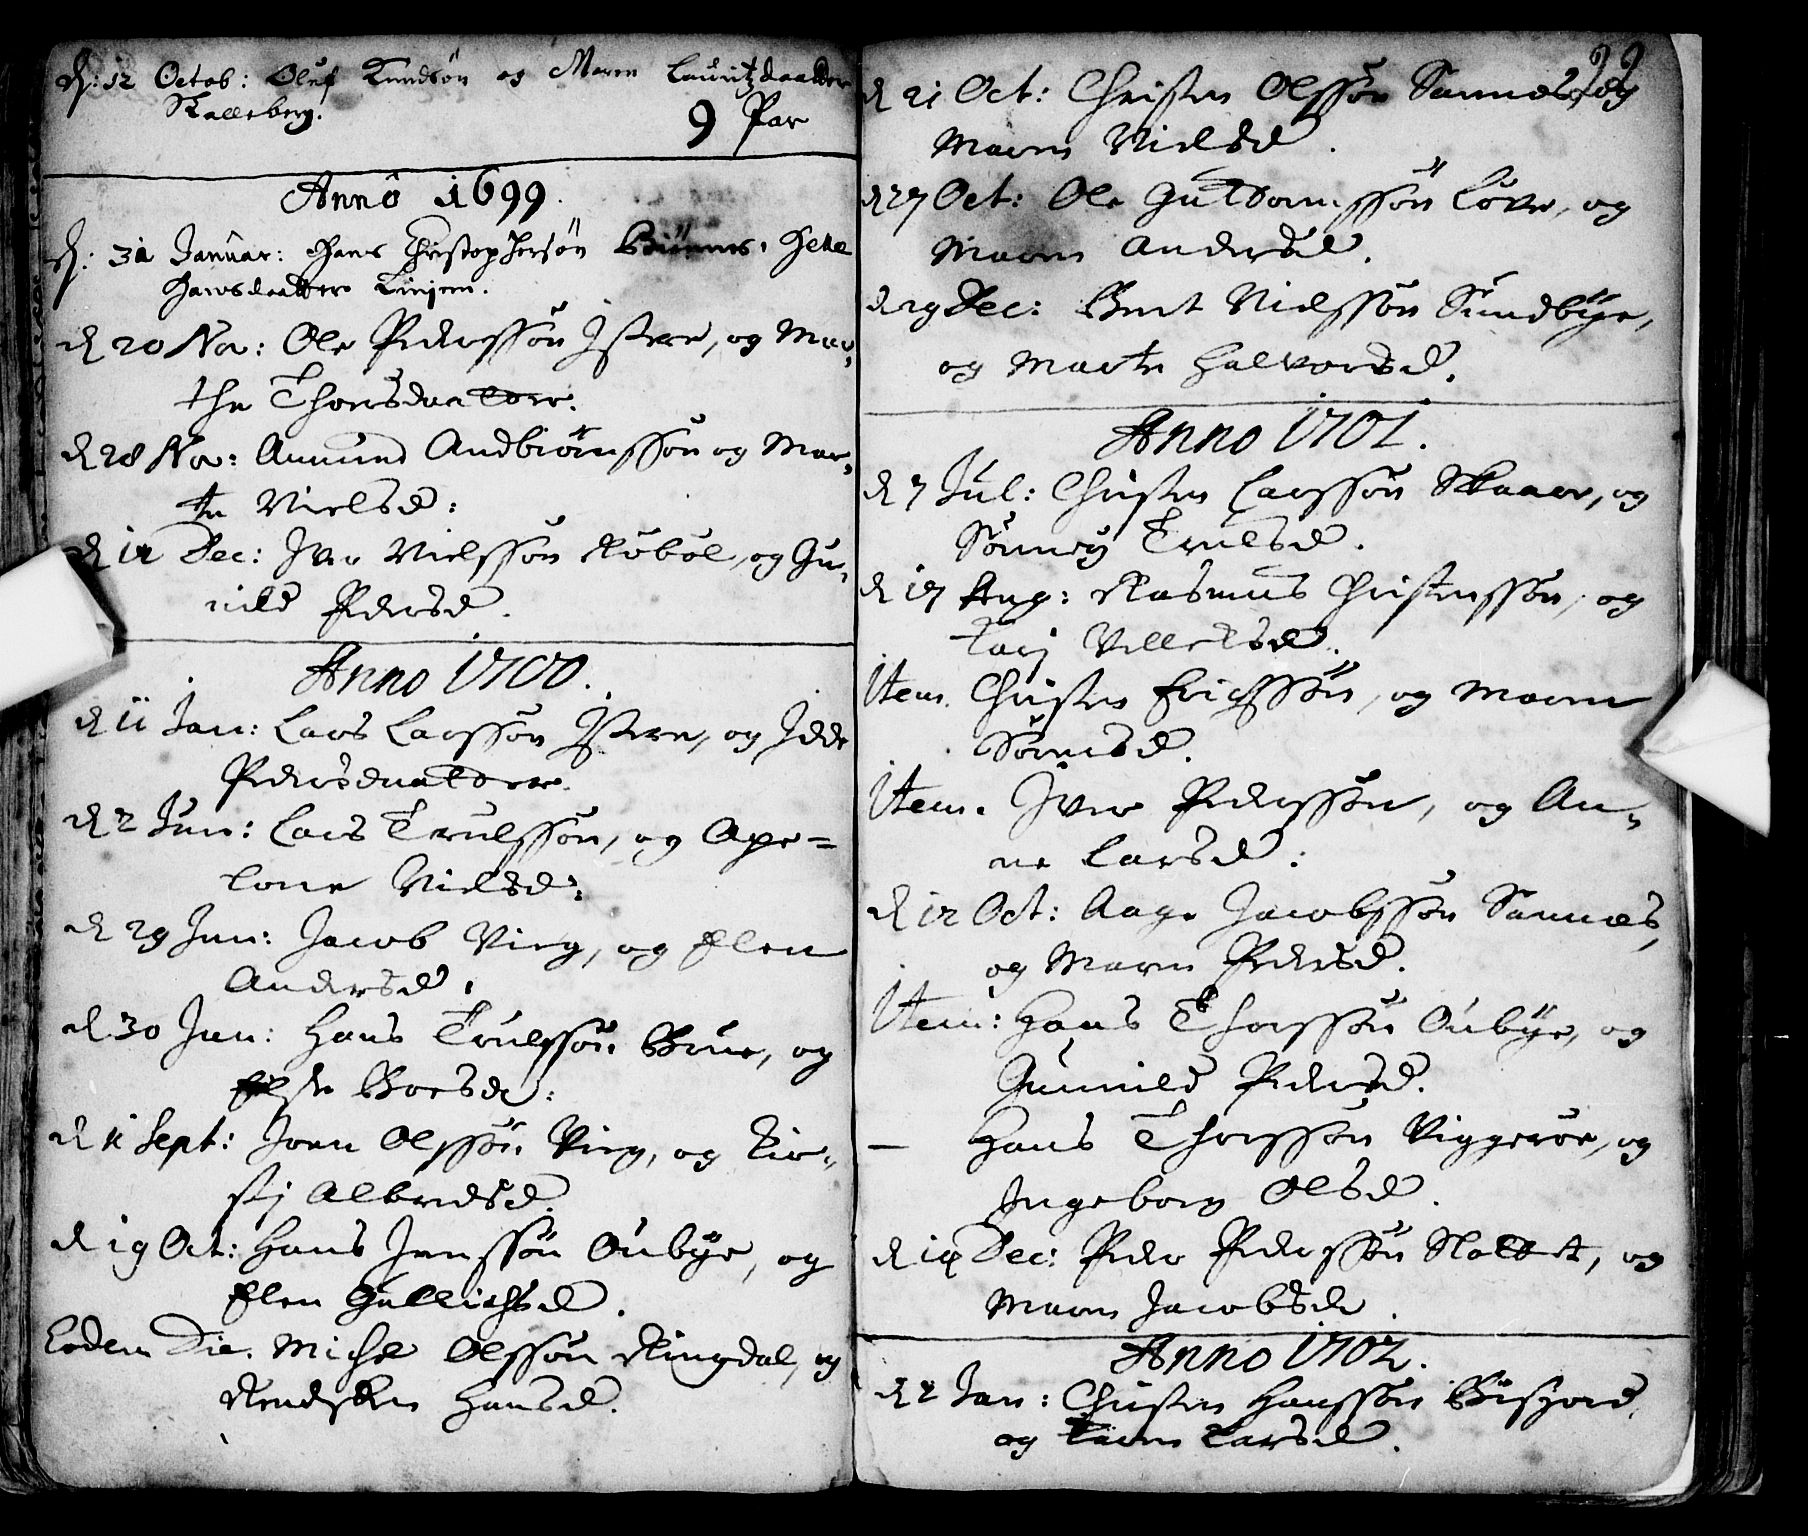 d: 12 Octob: Oluf Knudsön og Maren Lauritzdaatter
Skalleberg.
9 Par
Anno 1699.
d: 31 Januar: Hans Christophersön
Hansdaatter
d 20 No: Ole Pederssön Istre, og Mar-
the Thoersdaatter.
d 28 No: Amund Andbiörnssön og Mar-
te Nielsd:
d 12 Dec: Iver Nielssön Röböl, og Gu-
nild Pedersd.
Anno 1700.
d 11 Jan: Lars Larssön Istre, og Idde
Pedersdaatter.
d 2 Jun: Lars Trulssön, og Ape=
lone Nielsd:
d 29 Jun: Jacob Virg, og Elen
Andersd.
d 30 Jun: Hans Trulssön Brue, og
Else Boesd:
d 11 Sept: Joen Olssön Virg, og Kir-
stj Albredsd.
d 19 Oct: Hans Jenssön Oubÿe, og
Elen Gullichsd.
Eodem Die. Michel Olssön Ringdal, og
Hansd.
99
d 21 Oct: Christen Olssön Sannes, og
Maren Nielsd.
d 27 Oct: Ole Guldormssön Löve, og
Maren Andersd.
d 29 Dec: Bent Nielssön Sundbÿe,
og Marte Halvorsd.
Anno 1701.
d 7 Jul: Christen Larssön Skaaer, og
Sönnoy Trulsd.
d 17 Aug: Rasmus Christenssön, og
Karj Villelsd.
Item. Christen Erichssön, og Maren
Sörensd.
Item. Iver Pederssön, og An-
ne Larsd:
d 12 Oct: Aage Jacobssön Sannes,
og Maren Pedersd.
Item: Hans Thorssön Oubÿe, og
Gunnild Pedersd.
— Hans Thorssön Viggeröe, og
Ingeborg Olsd.
d 19 Dec: Peder Pederssön Slottet, og
Maren Jacobsd.
Anno 1702.
d 2 Jan: Christen Hanssön Bisjord,
og Karen Larsd.